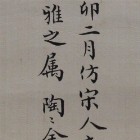 卯二月仿宋人
雅之属陶〻舍